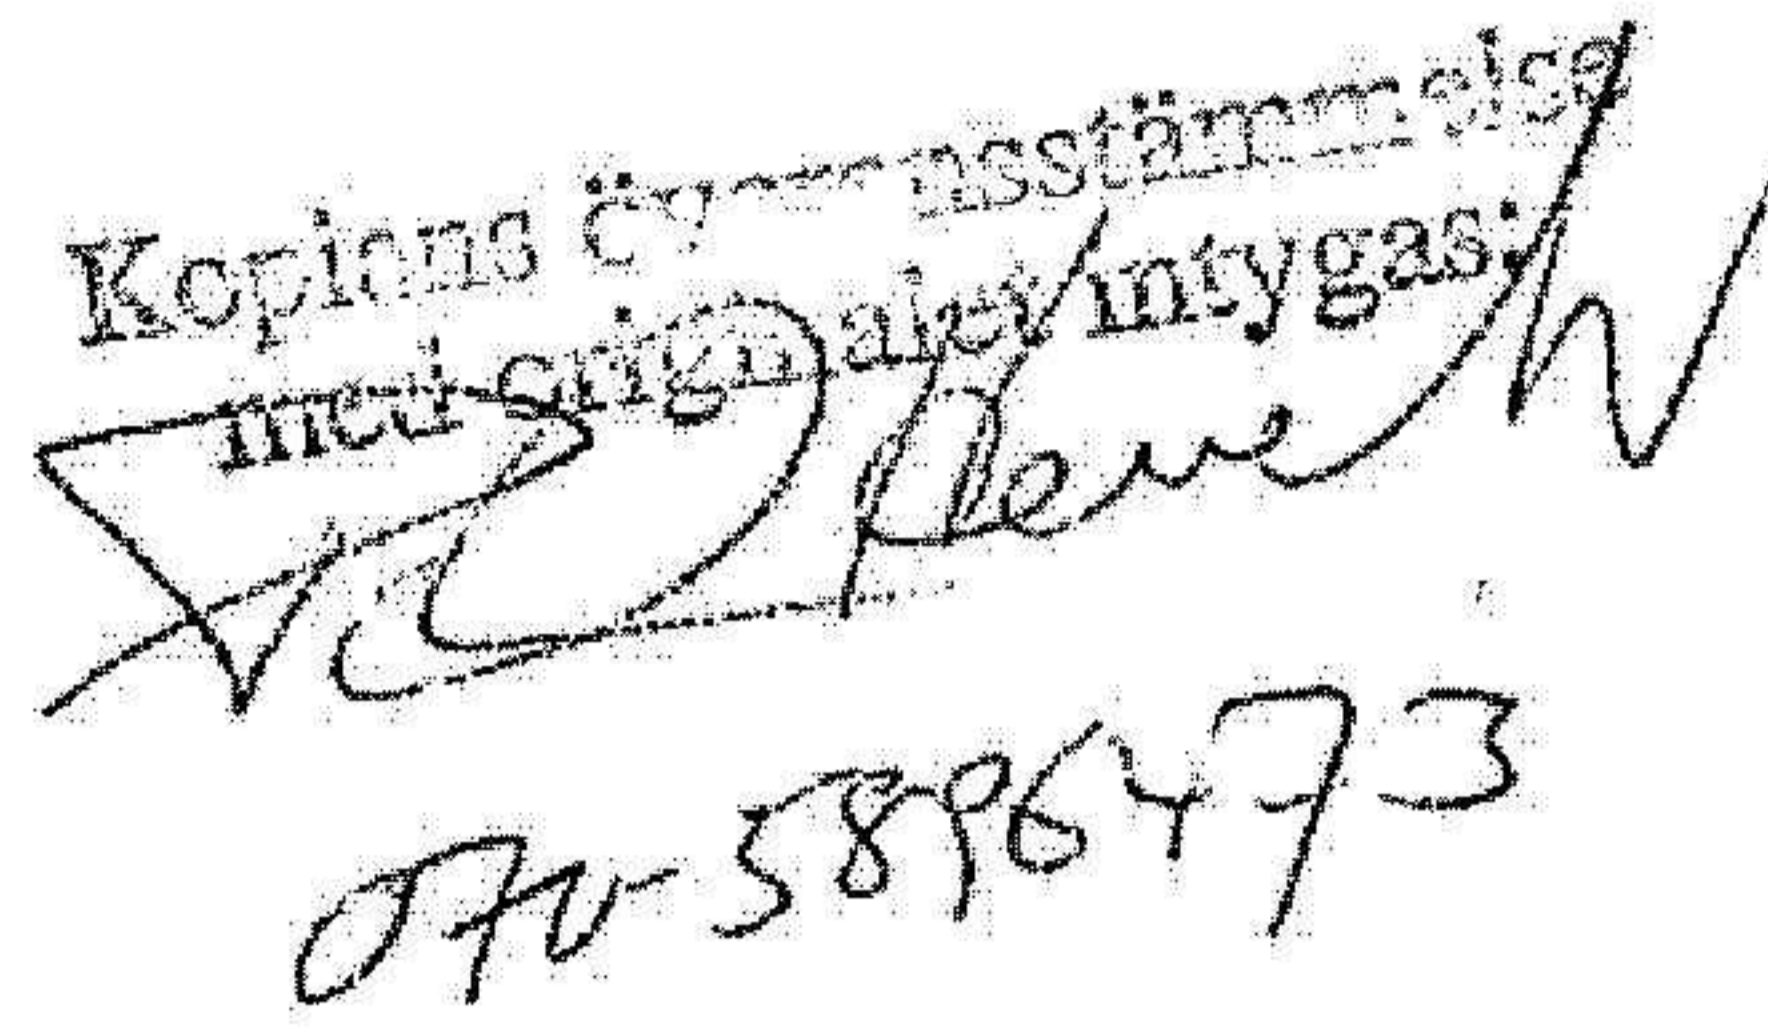 Kopians överensstämmelse
med originalet intygas:
070-5896473